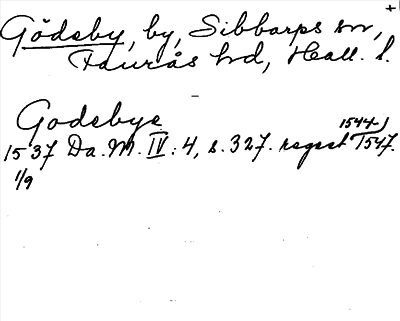 +
Gödeby, by, Sibbarps sn,
Faurås hd, Hall. l.
Godebye
1537 Da. M. IV: 4, s. 327. regest 1544-1547.
1/9